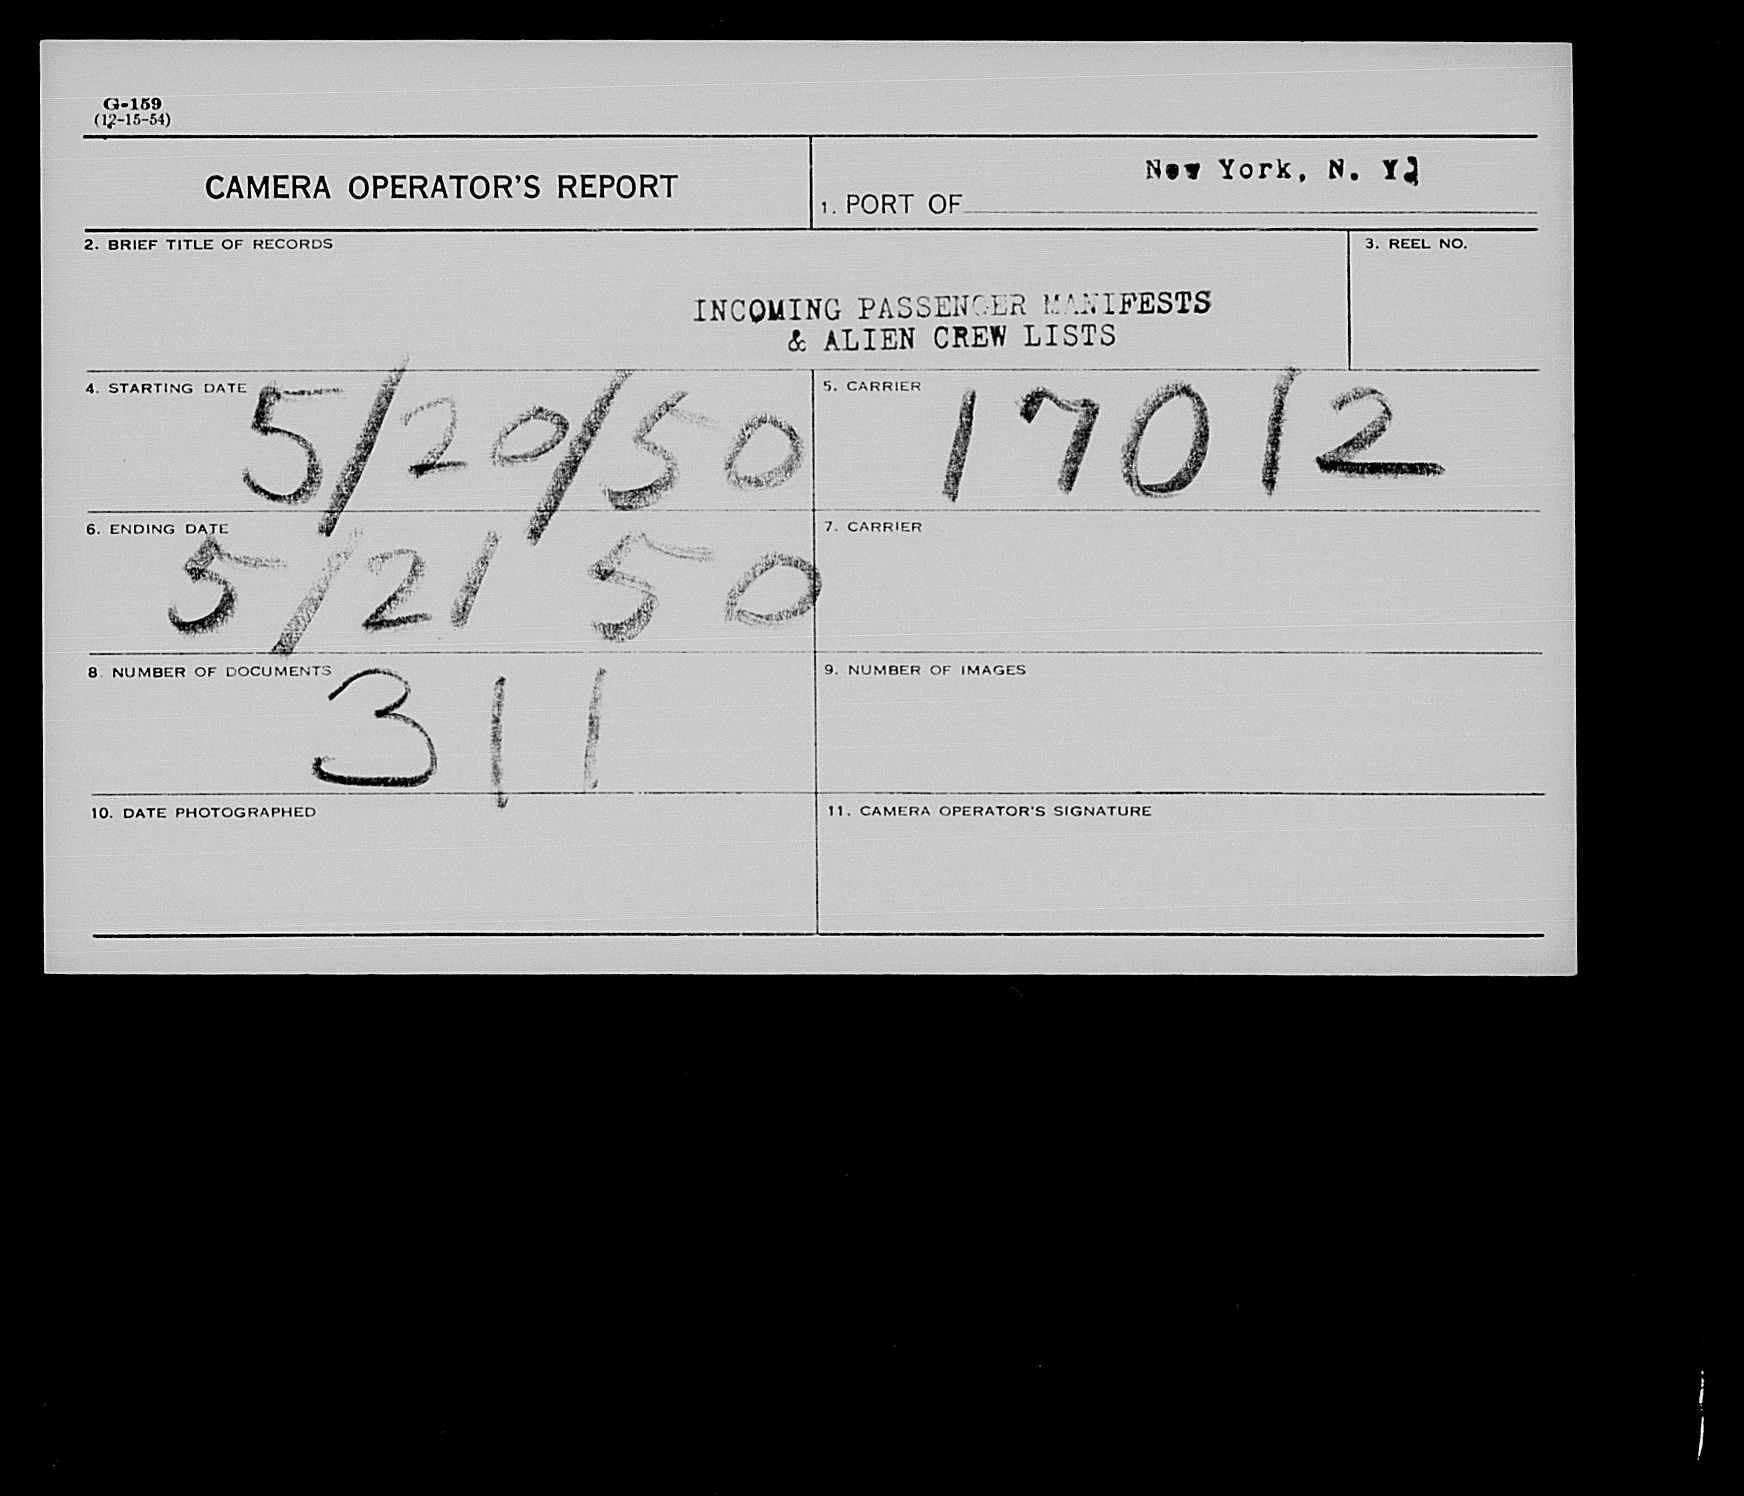 G-159
(12-15-54)
CAMERA OPERATOR'S REPORT
1. PORT OF New York, N. Y.
2. BRIEF TITLE OF RECORDS
INCOMING PASSENGER MANIFESTS
& ALIEN CREW LISTS
3. REEL NO.
4. STARTING DATE 5/20/50
5. CARRIER 17012
6. ENDING DATE 5/21 50
7. CARRIER
8. NUMBER OF DOCUMENTS 311
9. NUMBER OF IMAGES
10. DATE PHOTOGRAPHED
11. CAMERA OPERATOR'S SIGNATURE